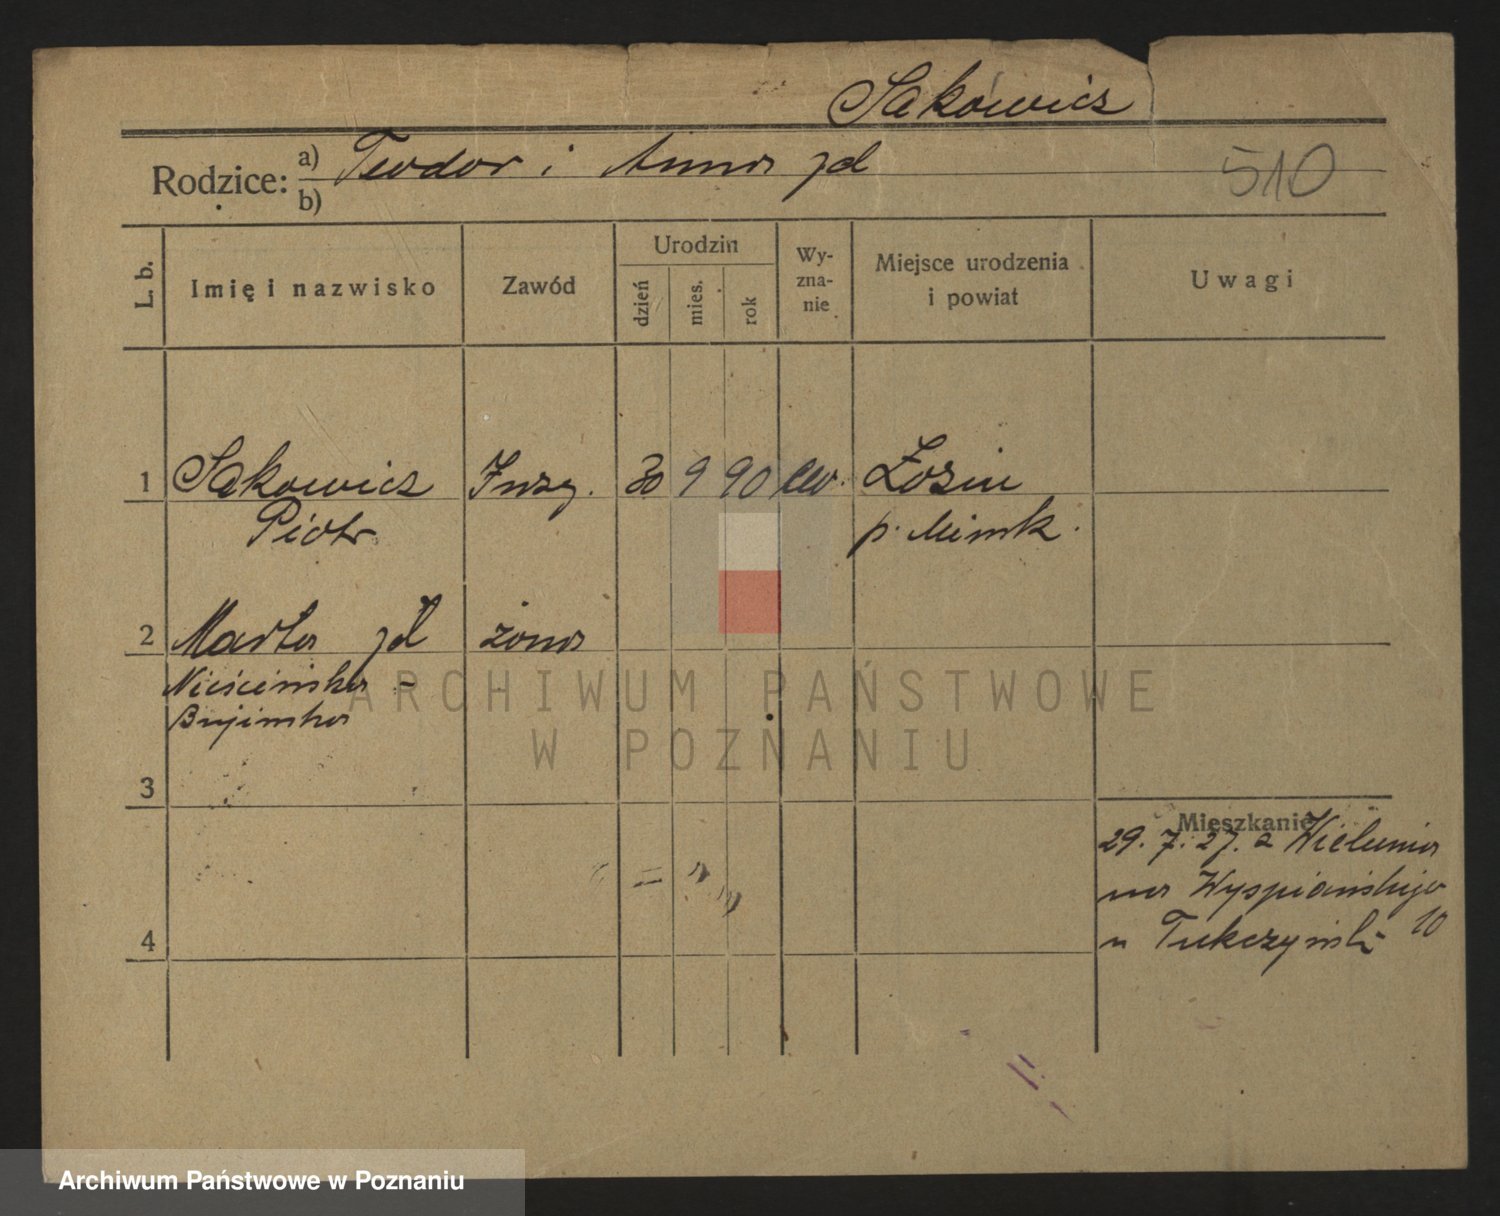 Sakowicz
Rodzice: a) Teodor i Anna zd
b)
510
L. b.
Imię i nazwisko
Zawód
Urodzin
dzień
mies.
rok
Wy-
zna-
nie
Miejsce urodzenia
i powiat
Uwagi
1 Sakowicz Inży. 30 9 90 ew. Łosin
Piotr p. Mińsk.
2 Marta zd żona
Nieścińska -
Bujinska
ARCHIWUM PAŃSTWOWE
W POZNANIU
3
Mieszkanie
29.7.27. z Wielunia
na Wyspiańskiego
10
u Tukczyński
4
Archiwum Państwowe w Poznaniu